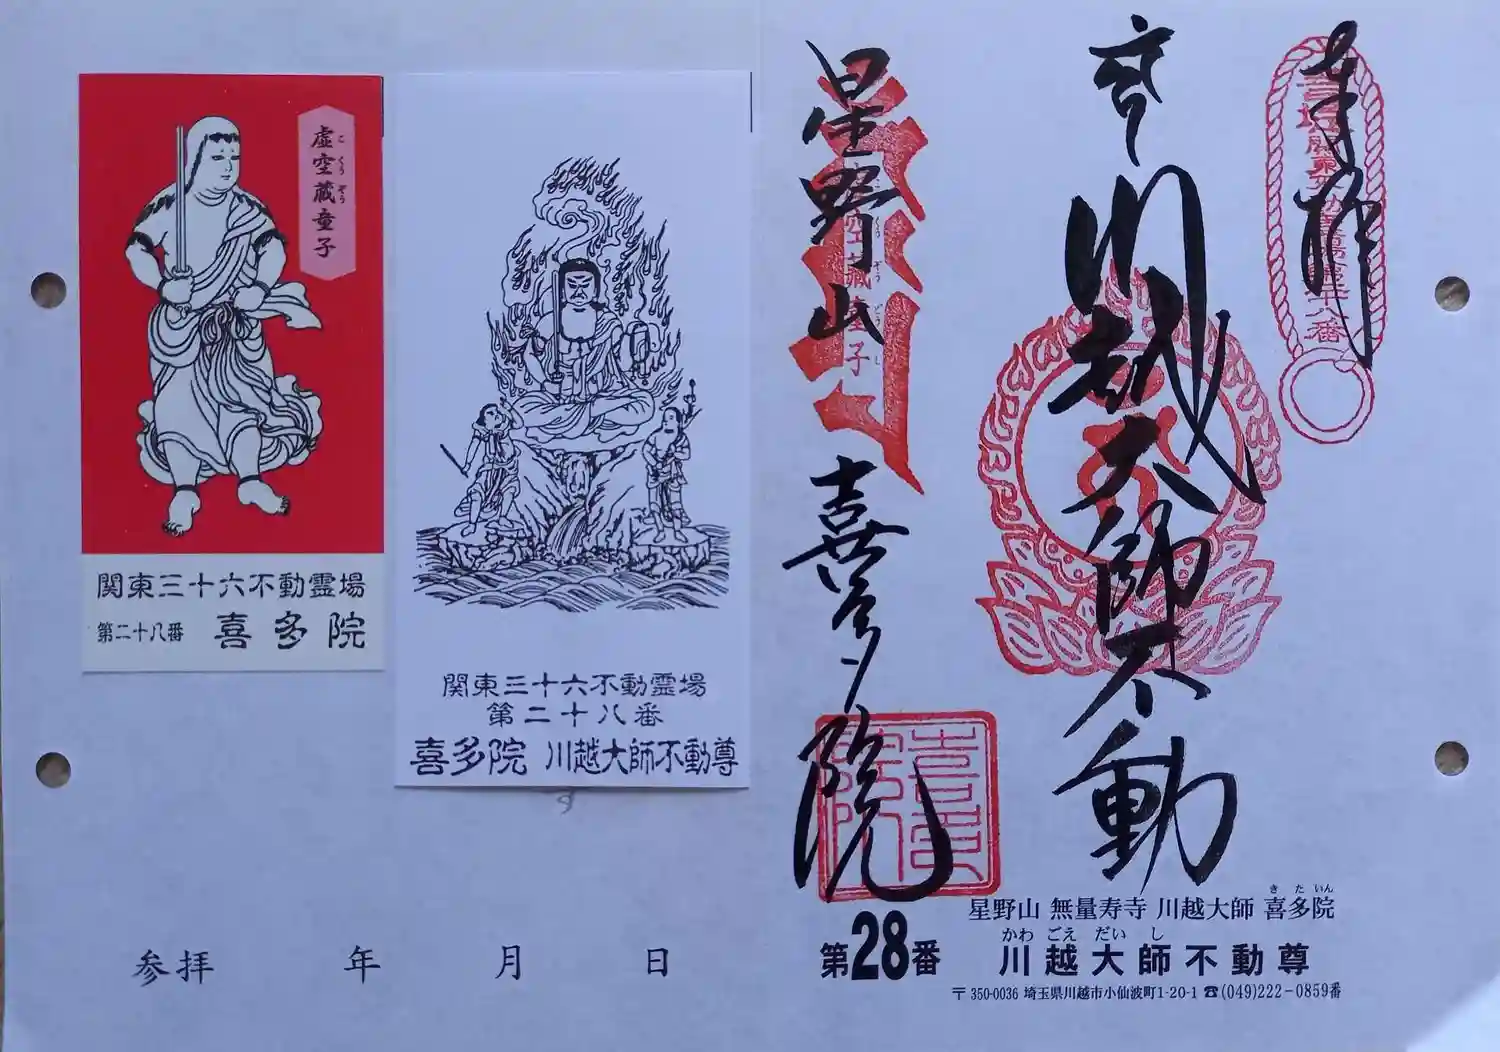 虚空蔵童子
こくうぞう
関東三十六不動霊場
第二十八番 喜多院
関東三十六不動霊場
第二十八番
喜多院 川越大師不動尊
参拝 年 月 日
奉拝
川越大師不動
星野山 喜多院
空蔵童子
くうぞうどうし
第28番
きたいん
星野山 無量寿寺 川越大師 喜多院
かわごえだいし
川越大師不動尊
〒350-0036 埼玉県川越市小仙波町1-20-1 ☎(049)222-0859番